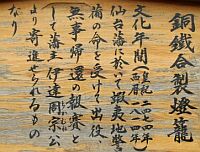 銅鐵合製燈籠
文化年間（皇紀二四七四年
西暦一八一四年）
仙台藩に於いて蝦夷地警
備の命を受けて出役、
無事帰還の報賽と
して藩主伊達周宗公
より寄進せられるもの
なり